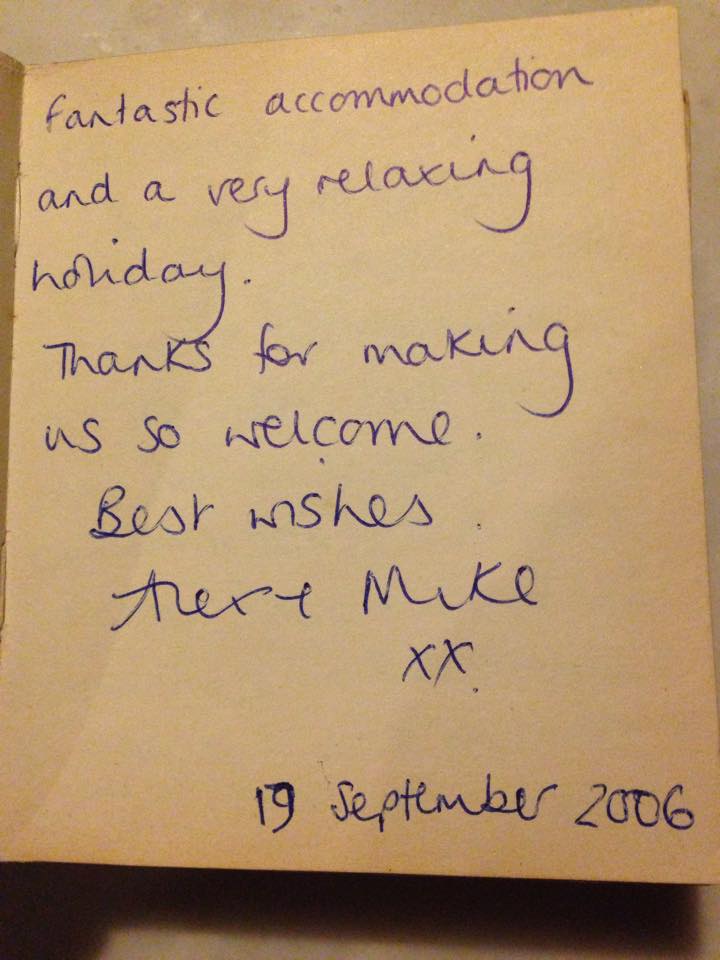 fantastic accommodation
and a very relaxing
holiday.
Thanks for making
us so welcome.
Best wishes.
Alex + Mike
xx
19 September 2006